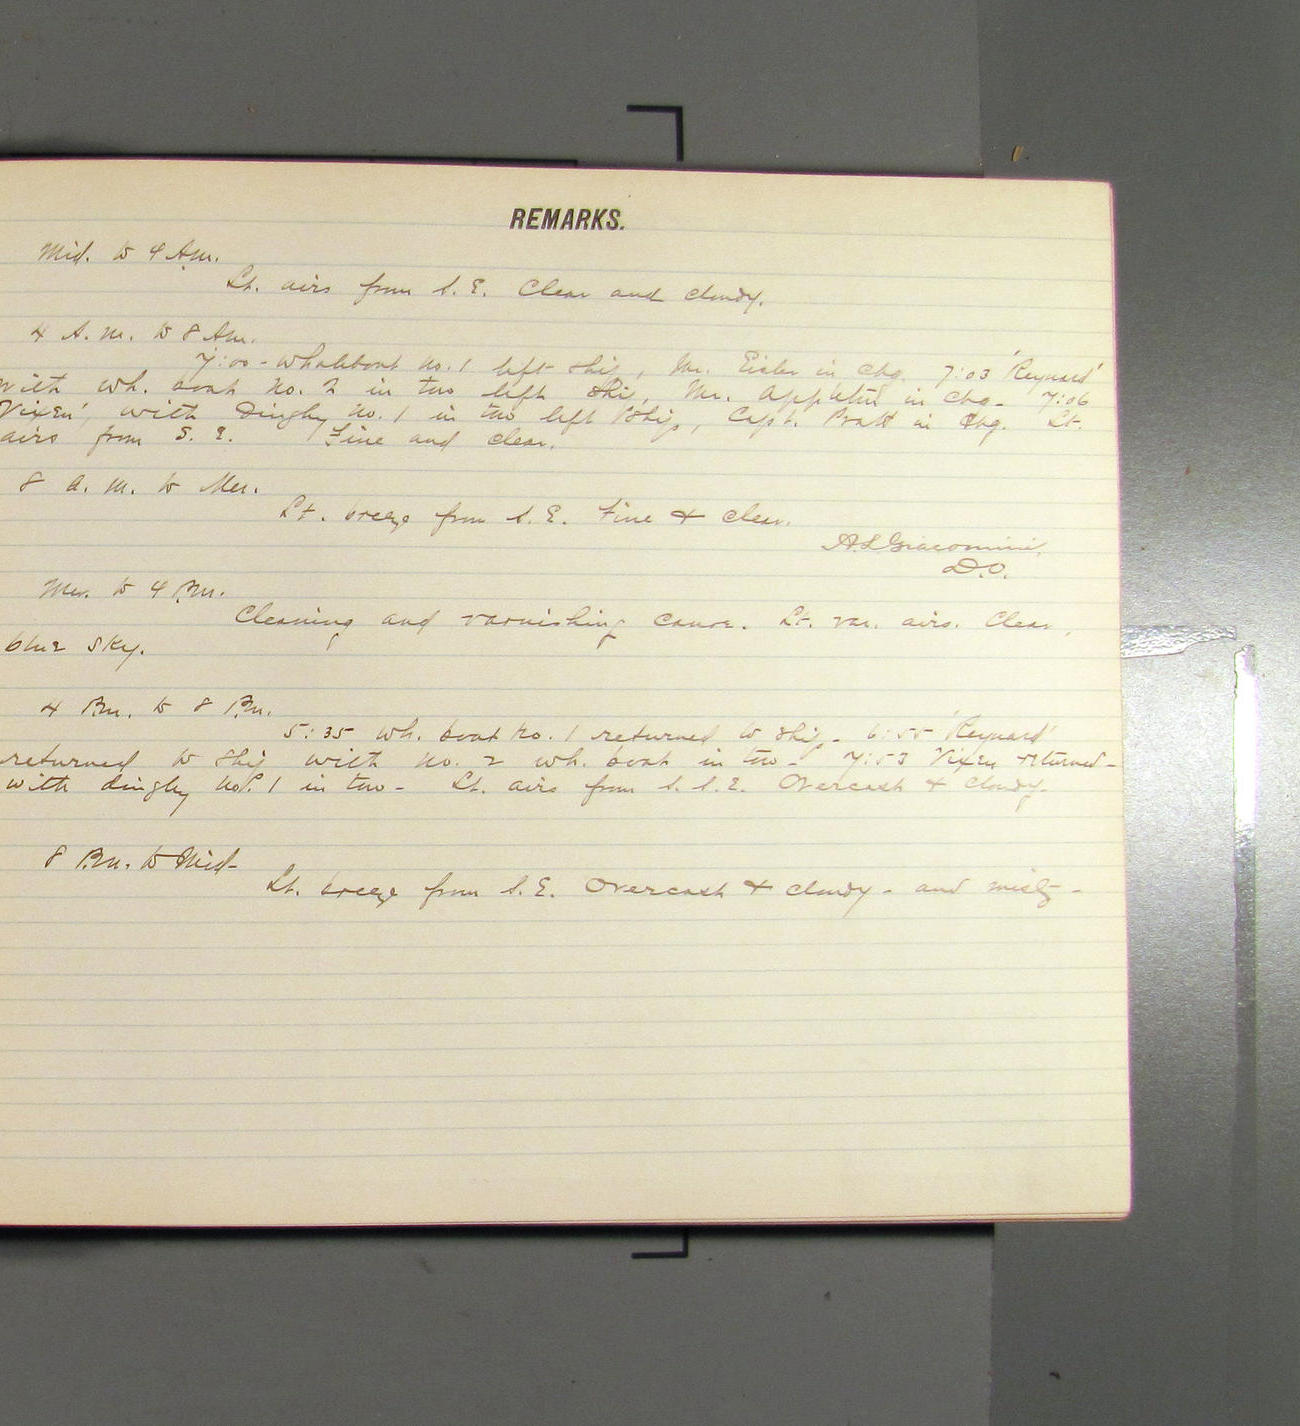 REMARKS.
Mid. to 4 Am.
Lt. airs from S. E. Clear and cloudy.
4 A. m. to 8 Am.
7:00 - Whaleboat no. 1 left ship, Mr. Eisler in chg. 7:03 'Reynard'
with wh. boat no. 2 in tow left ship, Mr. in chg - 7:06
Vixen', with Dinghy no. 1 in tow left ship, Capt. Pratt in chg. Lt.
airs from S. E. Fine and clear.
8 a. m. to Mer.
Lt. breeze from S. E. Fine & clear.
A.L. Giacomini
D.O.
Mer. to 4 Pm.
Cleaning and varnishing canoe. Lt. var. airs. Clear,
blue sky.
4 Pm. to 8 Pm.
5:35 wh. boat no. 1 returned to ship - 6:55 'Reynard'
returned to ship with no. 2 wh. boat in tow - 7:53 Vixen returned -
with dinghy no. 1 in tow - Lt. airs from S. S. E. Overcast & cloudy.
8 Pm. to Mid-
Lt. breeze from S. E. Overcast & cloudy - and misty -